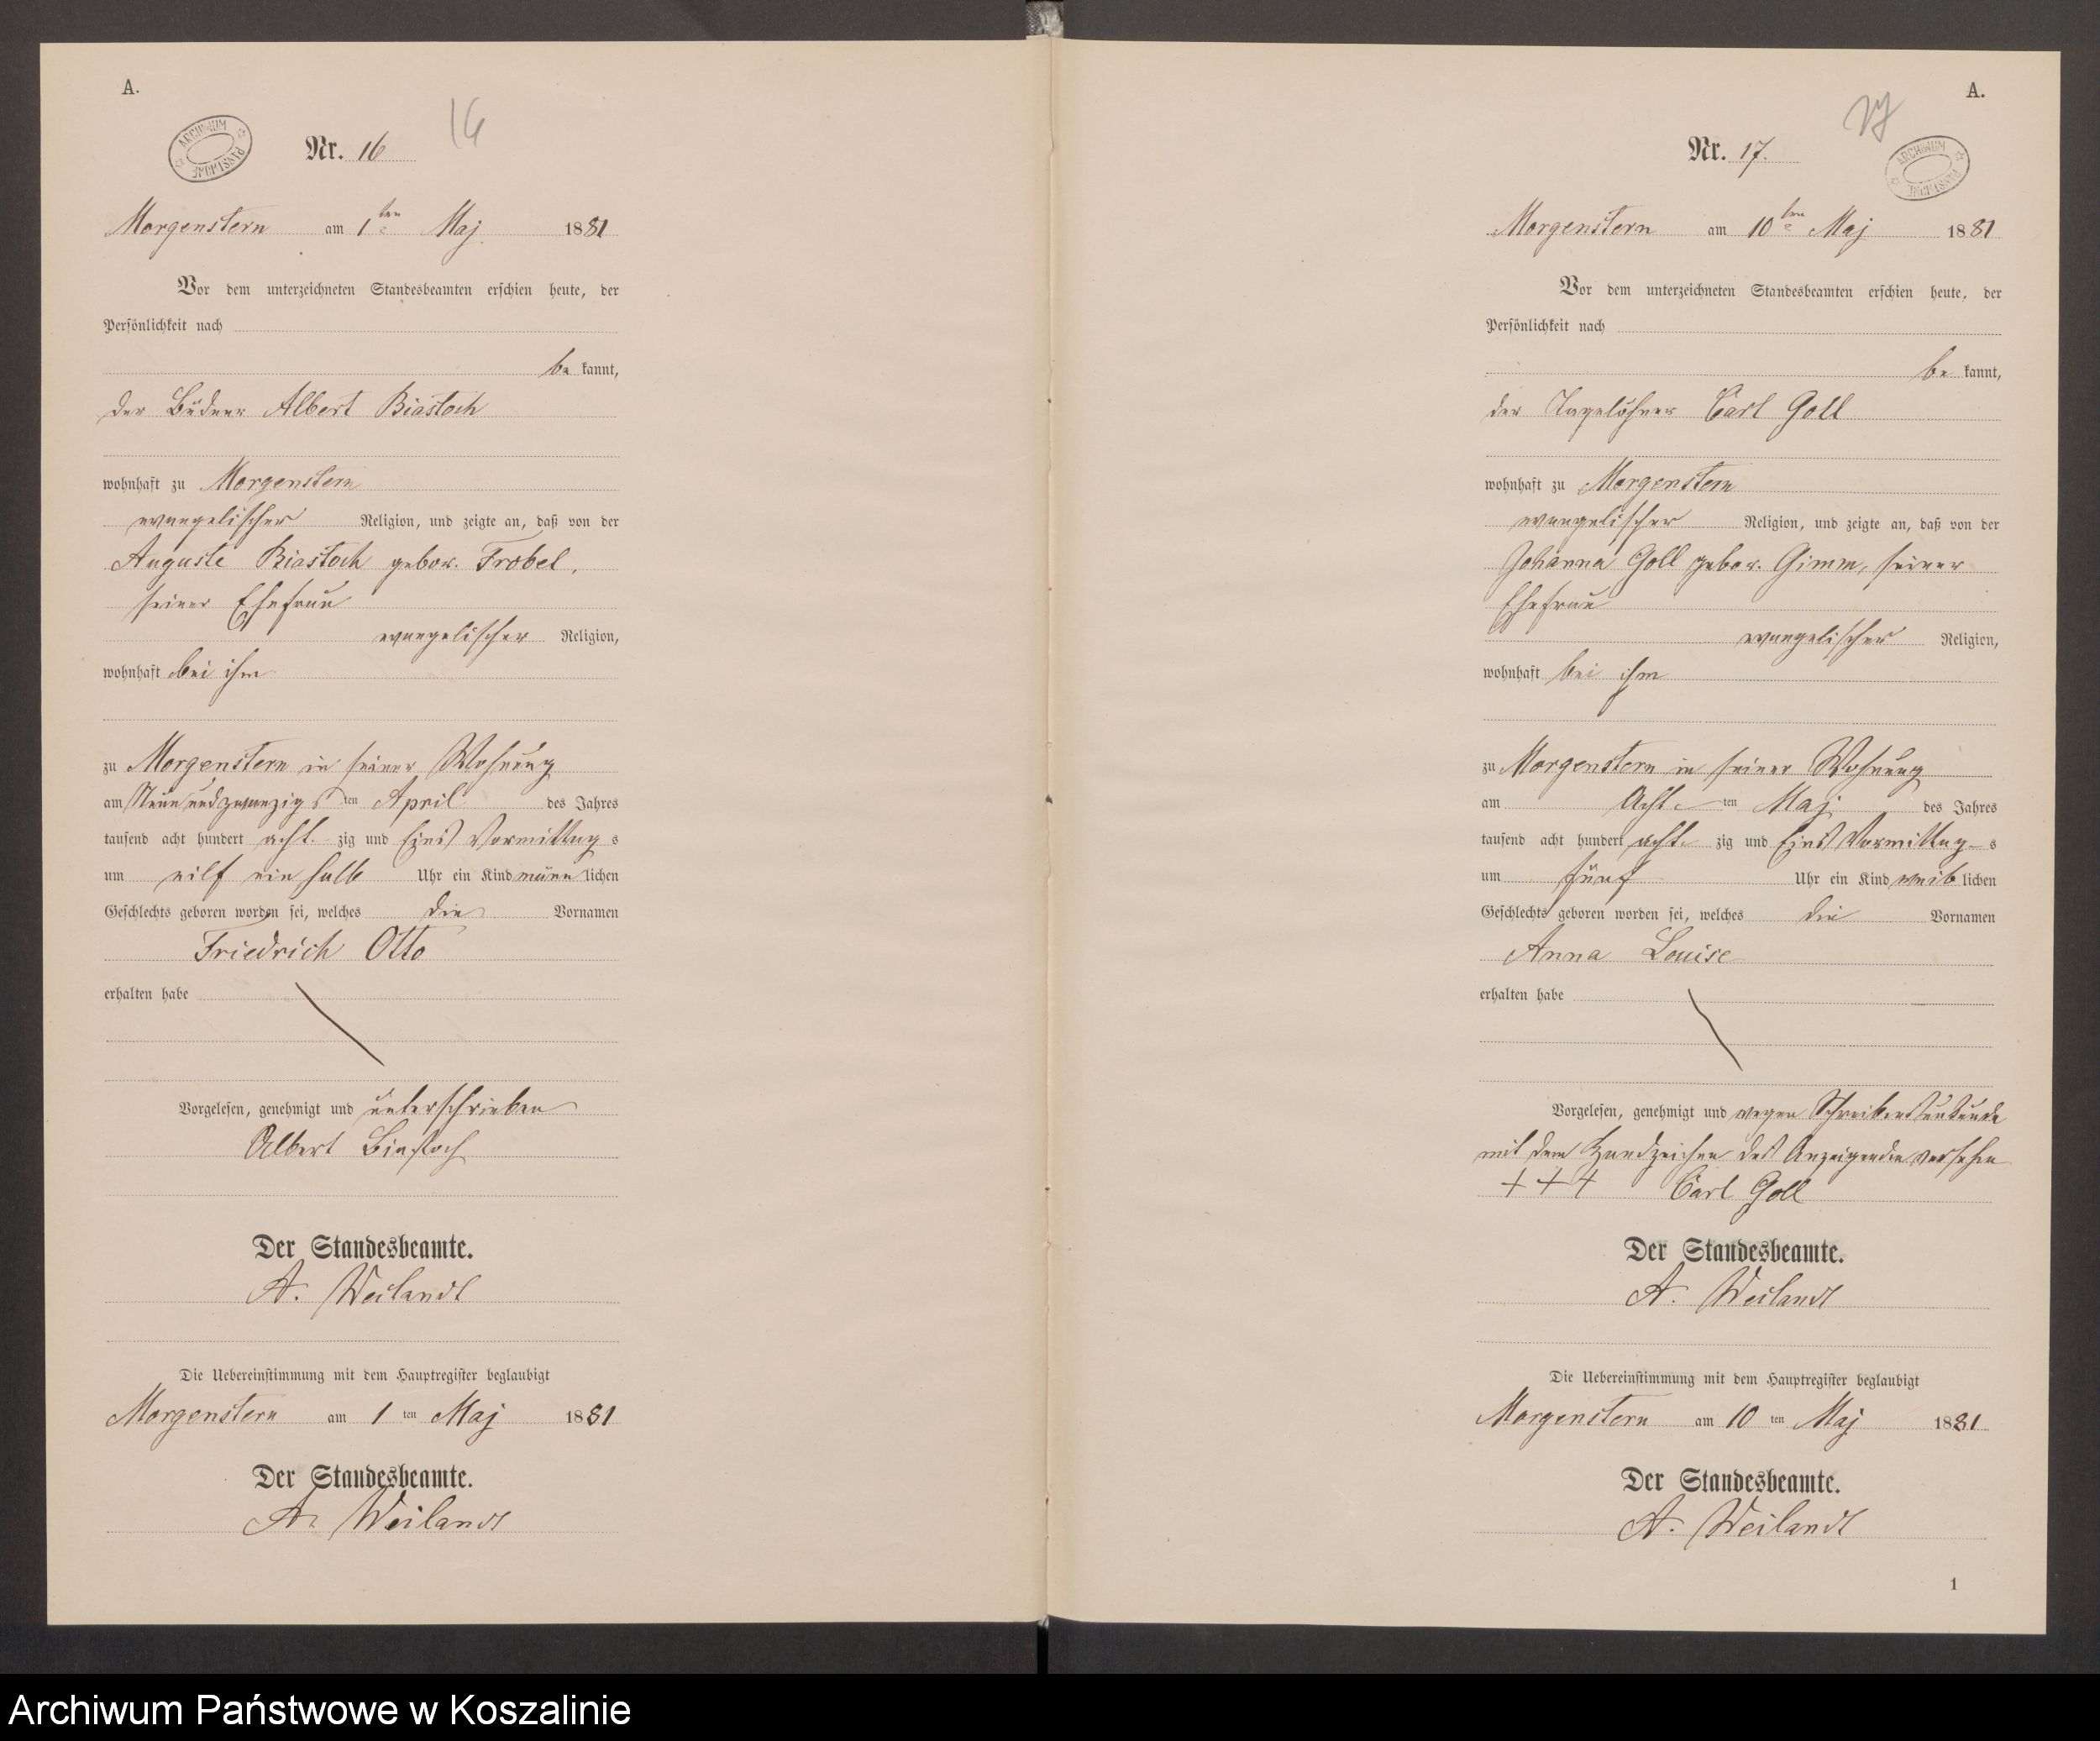 A.
ARCHIWUM PAŃSTWOWE
Nr. 16
16
Morgenstern am 1ten Maj 1881
Vor dem unterzeichneten Standesbeamten erschien heute, der
Persönlichkeit nach
be kannt,
der Büdner Albert Biastoch
wohnhaft zu Morgenstern
evangelischer Religion, und zeigte an, daß von der
Auguste Biastoch gebor. Frobel,
seiner Ehefrau
evangelischer Religion,
wohnhaft bei ihm
zu Morgenstern in seiner Wohnung
am Neunundzwanzigsten April des Jahres
tausend acht hundert acht zig und Eins Vormittag s
um eilf ein halb Uhr ein Kind männlichen
Geschlechts geboren worden sei, welches die Vornamen
Friedrich Otto
erhalten habe
Vorgelesen, genehmigt und unterschrieben
Albert Biastoch
Der Standesbeamte.
A. Weilandt
Die Uebereinstimmung mit dem Hauptregister beglaubigt
Morgenstern am 1 ten Maj 1881
Der Standesbeamte.
A. Weilandt
A.
17
ARCHIWUM PAŃSTWOWE
Nr. 17.
Morgenstern am 10ten Maj 1881
Vor dem unterzeichneten Standesbeamten erschien heute, der
Persönlichkeit nach
be kannt,
der Tagelöhner Carl Goll
wohnhaft zu Morgenstern
evangelischer Religion, und zeigte an, daß von der
Johanna Goll gebor. Gimm, seiner
Ehefrau
evangelischer Religion,
wohnhaft bei ihm
zu Morgenstern in seiner Wohnung
am Acht ten Maj des Jahres
tausend acht hundert acht zig und Eins Vormittag s
um fünf Uhr ein Kind weiblichen
Geschlechts geboren worden sei, welches die Vornamen
Anna Louise
erhalten habe
Vorgelesen, genehmigt und wegen Schreibensunkunde
mit dem Handzeichen des Anzeigenden versehen
+++ Carl Goll
Der Standesbeamte.
A. Weilandt
Die Uebereinstimmung mit dem Hauptregister beglaubigt
Morgenstern am 10 ten Maj 1881
Der Standesbeamte.
A. Weilandt
1
Archiwum Państwowe w Koszalinie